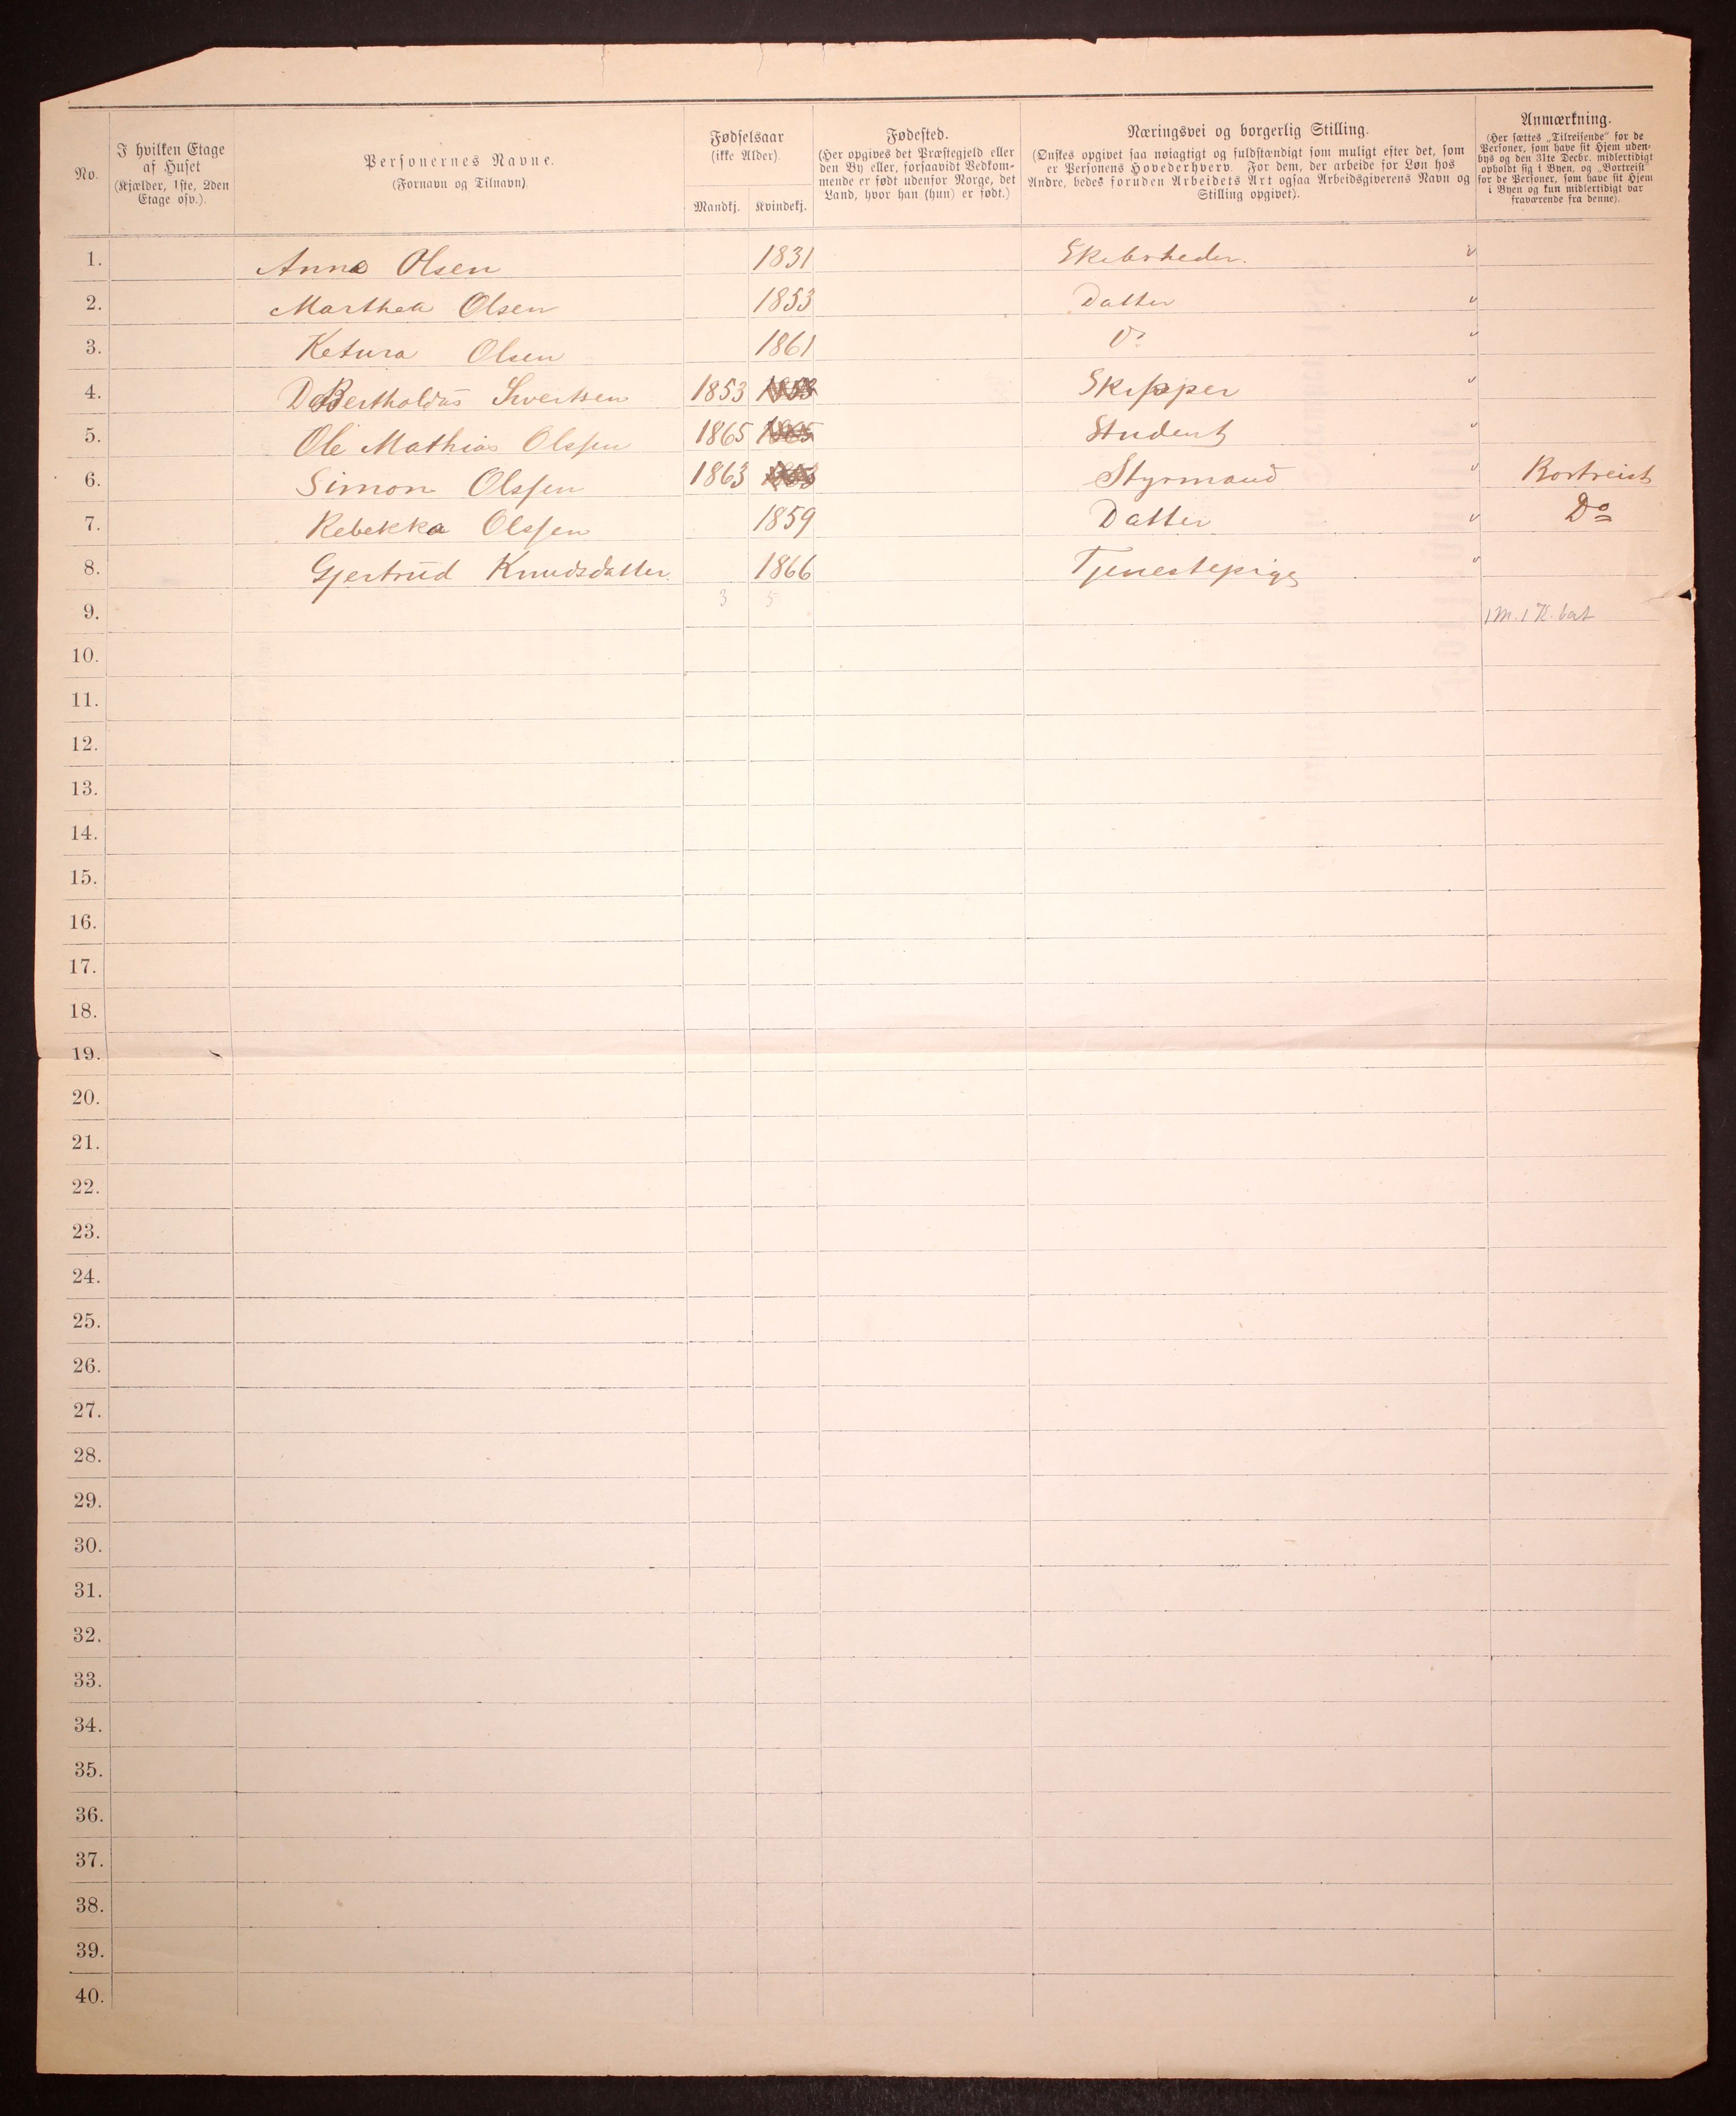 No.
I hvilken Etage
af Huset
(Kjælder, 1ste, 2den
Etage osv.).
Personernes Navne.
(Fornavn og Tilnavn).
Fødselsaar
(ikke Alder).
Mandkj. Kvindekj.
Fødested.
(Her opgives det Præstegjeld eller
den By eller, forsaavidt Vedkom-
mende er født udenfor Norge, det
Land, hvor han (hun) er født.)
Næringsvei og borgerlig Stilling.
(Ønskes opgivet saa nøiagtigt og fuldstændigt som muligt efter det, som
er Personens Hovederhverv. For dem, der arbeide for Løn hos
Andre, bedes foruden Arbeidets Art ogsaa Arbeidsgiverens Navn og
Stilling opgivet).
Anmærkning.
(Her sættes „Tilreisende" for de
Personer, som have sit Hjem uden-
bys og den 31te Decbr. midlertidigt
opholdt sig i Byen, og „Bortreist"
for de Personer, som have sit Hjem
i Byen og kun midlertidigt var
fraværende fra denne).
1. Anna Olsen 1831 Skibsrheder.
2. Marthea Olsen 1853 Datter
3. Ketura Olsen 1861 Do
4. Bertholdus Sivertsen 1853 1853 Skipper
5. Ole Mathias Olssen 1865 1865 Student
6. Simon Olssen 1863 1863 Styrmand Bortreist
7. Rebekka Olssen 1859 Datter Do
8. Gjertrud Knudsdatter. 1866 Tjenestepige
9. 3 5 1 M. 1 K. bort
10.
11.
12.
13.
14.
15.
16.
17.
18.
19.
20.
21.
22.
23.
24.
25.
26.
27.
28.
29.
30.
31.
32.
33.
34.
35.
36.
37.
38.
39.
40.